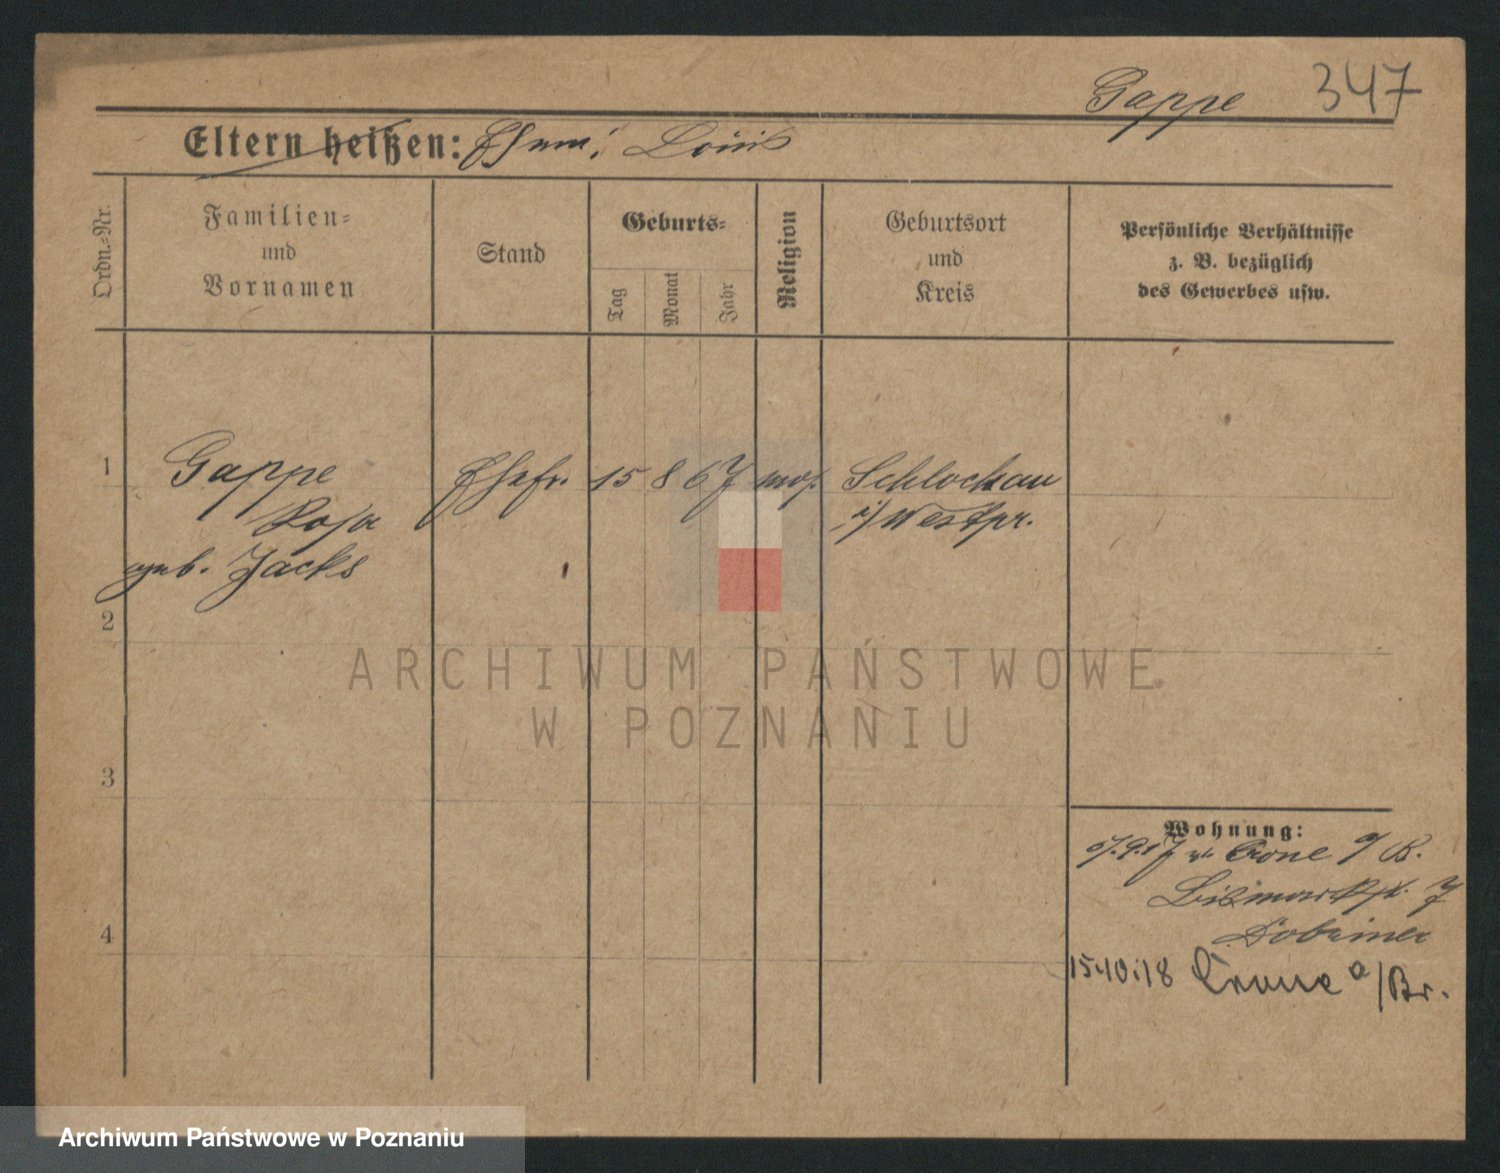 Gappe 347
Eltern heißen: Ehem: Louis
Ordn.-Nr.
Familien-
und
Vornamen
Stand
Geburts-
Tag
Monat
Jahr
Religion
Geburtsort
und
Kreis
Persönliche Verhältnisse
z. B. bezüglich
des Gewerbes usw.
1 Gappe Ehefr. 15 8 67 mos. Schlochau
Rosa i/Westpr.
geb. Jacks
2
3
4
ARCHIWUM PAŃSTWOWE
W POZNANIU
Wohnung:
Crone a/B.
Bismarckstr. 7
Dobriner
15.10.18 Crone a/Br.
Archiwum Państwowe w Poznaniu